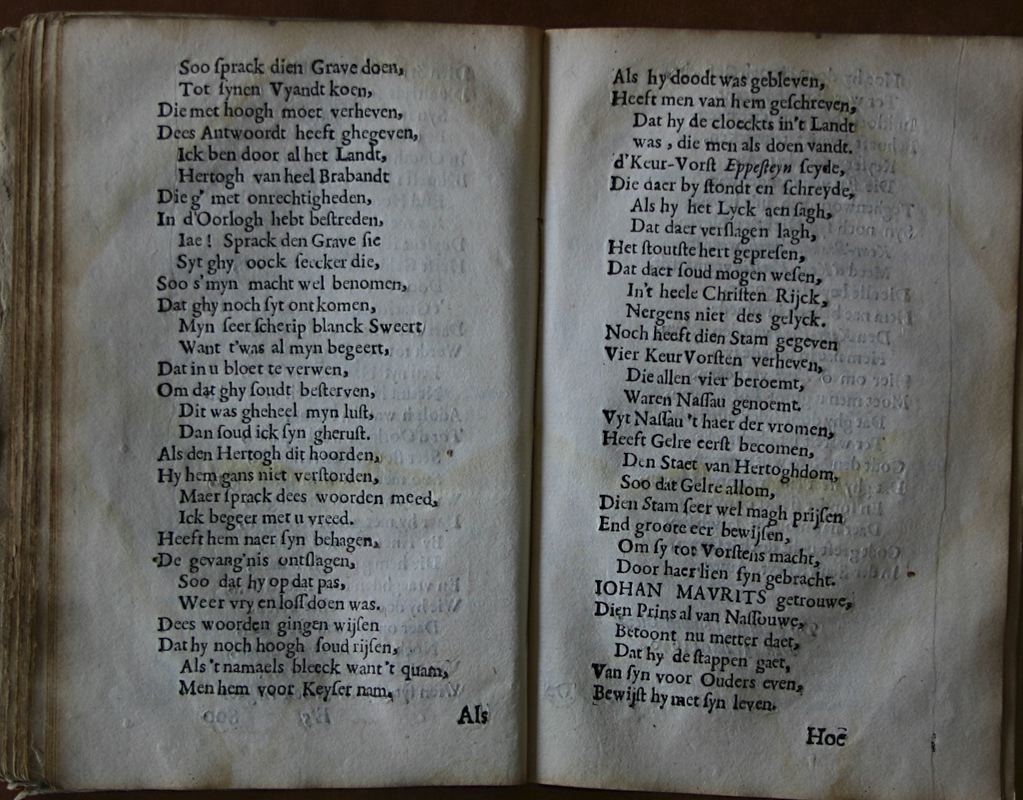 Soo ſprack dien Grave doen,
Tot ſynen Vyandt koen,
Die met hoogh moet verheven,
Dees Antwoordt heeft ghegeven,
Ick ben door al het Landt,
Hertogh van heel Brabandt
Die g' met onrechtigheden,
In d'Oorlogh hebt beſtreden,
Iae ! Sprack den Grave ſie
Syt ghy oock ſeecker die,
Soo s'myn macht wel benomen,
Dat ghy noch ſyt ontkomen,
Myn ſeer ſcherip blanck Sweert
Want t'was al myn begeert,
Dat in u bloet te verwen,
Om dat ghy ſoudt beſterven,
Dit was gheheel myn luſt,
Dan ſoud ick ſyn gheruſt.
Als den Hertogh dit hoorden,
Hy hem gans niet verſtorden,
Maer ſprack dees woorden meed,
Ick begeer met u vreed.
Heeft hem naer ſyn behagen,
De gevang'nis ontſlagen,
Soo dat hy op dat pas,
Weer vry en loſſ doen was.
Dees woorden gingen wijſen
Dat hy noch hoogh ſoud rijſen,
Als 't namaels bleeck want 't quam,
Men hem voor Keyſer nam,
Als
Als hy doodt was gebleven,
Heeft men van hem geſchreven,
Dat hy de cloeckts in't Landt
was , die men als doen vandt.
d'Keur-Vorſt Eppeſteyn ſeyde,
Die daer by ſtondt en ſchreyde,
Als hy het Lyck aen ſagh,
Dat daer verſlagen lagh,
Het ſtoutſte hert gepreſen,
Dat daer ſoud mogen weſen,
In't heele Chriſten Rijck,
Nergens niet des gelyck.
Noch heeft dien Stam gegeven
Vier KeurVorſten verheven,
Die allen vier beroemt,
Waren Naſſau genoemt.
Vyt Naſſau 't haer der vromen,
Heeft Gelre eerſt becomen,
Den Staet van Hertoghdom,
Soo dat Gelre allom,
Dien Stam ſeer wel magh prijſen
End groote eer bewijſen,
Om ſy tot Vorſtens macht,
Door haer lien ſyn gebracht.
IOHAN MAVRITS getrouwe,
Dien Prins al van Naſſouwe,
Betoont nu metter daet,
Dat hy de ſtappen gaet,
Van ſyn voor Ouders even,
Bewijſt hy met ſyn leven.
Hoe